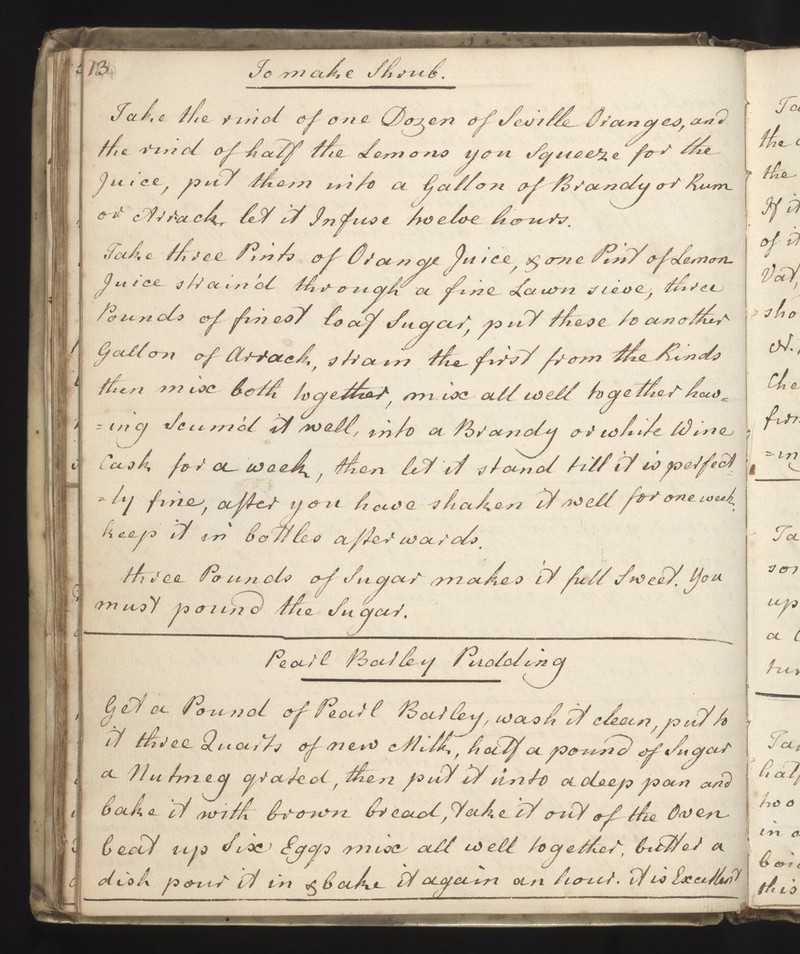 13
To make Shrub.
Take the rind of one Dozen of Seville Oranges, and
the rind of half the Lemons you Squeeze for the
Juice, put them into a Gallon of Brandy or Rum
or Arrack, let it Infuse twelve hours.
Take three Pints of Orange Juice, & one Pint of Lemon
Juice strain'd through a fine Lawn sieve, three
Pounds of finest loaf Sugar, put these to another
Gallon of Arrack, strain the first from the Rinds
then mix both together, mix all well together hav=
=ing Scum'd it well, into a Brandy or white Wine
Cask for a week, then let it stand till it is perfect
=ly fine, after you have shaken it well for one week,
keep it in bottles afterwards.
three Pounds of Sugar makes it full Sweet. You
must pound the Sugar.
Pearl Barley Pudding
Get a Pound of Pearl Barley, wash it clean, put to
it three Quarts of new Milk, half a pound of Sugar
a Nutmeg grated, then put it into a deep pan and
bake it with brown bread, take it out of the Oven
beat up Six Eggs mix all well together, butter a
dish pour it in & bake it again an hour. it is Excellent
the
the
If it
of it